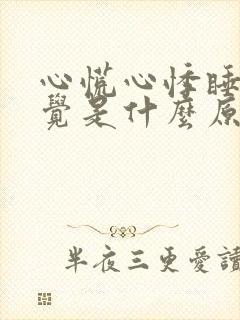 心慌心悸睡
覺是什麼原
半夜三更愛讀